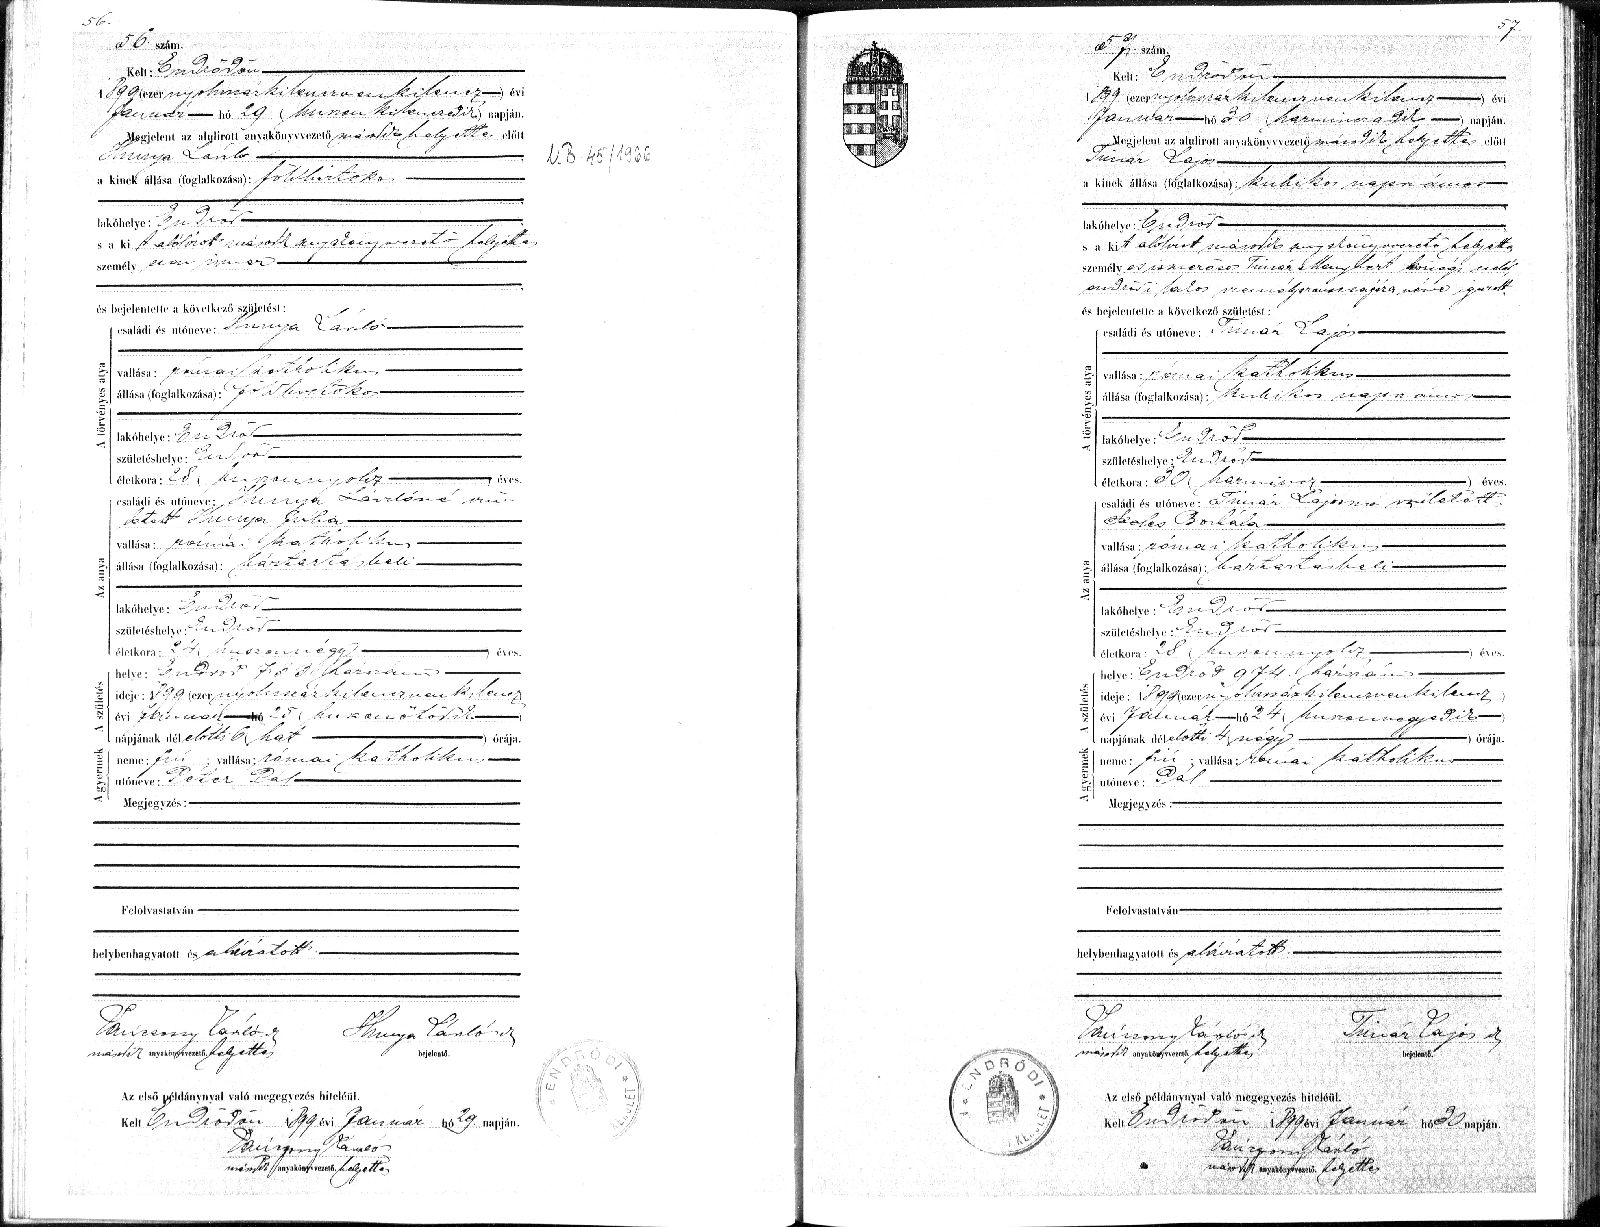 56.
56 szám.
Kelt: Endrődön
1899 (ezernyolcszázkilenczvenkilencz) évi
Január hó 29 (huszonkilenczedik) napján.
Megjelent az alulirott anyakönyvvezető második helyettes előtt
Hunya László
a kinek állása (foglalkozása): földbirtokos
lakóhelye: Endrőd
s a kit alólirott második anyakönyvvezető helyettes
személyesen ismer
és bejelentette a következő születést:
A törvényes atya
családi és utóneve: Hunya László
vallása: római katholikus
állása (foglalkozása): földbirtokos
lakóhelye: Endrőd
születéshelye: Endrőd
életkora: 28 (huszonnyolcz) éves.
Az anya
családi és utóneve: Hunya Lászlóné szü-
letett Hunya Julia
vallása: római katholikus
állása (foglalkozása): háztartásbeli
lakóhelye: Endrőd
születéshelye: Endrőd
életkora: 24 (huszonnégy) éves.
A születés
helye: Endrőd házszám
ideje: 1899 (ezernyolcszázkilenczvenkilencz
évi Január hó 25 (huszonötödik)
napjának délelőtti 6 (hat) órája.
A gyermek
neme: fiú; vallása: római katholikus
utóneve: Péter Pál
Megjegyzés:
Felolvastatván
helybenhagyatott és aláíratott.
László
második anyakönyvvezető helyettes
Hunya László
bejelentő.
Az első példánynyal való megegyezés hiteléül.
Kelt Endrődön 1899 évi Január hó 29 napján.
László
második anyakönyvvezető helyettes
ENDRŐDI
V.B 45/1966
57
57 szám.
Kelt: Endrődön
1899 (ezernyolcszázkilenczvenkilencz) évi
Január hó 30 (harminczadik) napján.
Megjelent az alulirott anyakönyvvezető második helyettes előtt
Timár Lajos
a kinek állása (foglalkozása): kubikos napszámos
lakóhelye: Endrőd
s a kit alólirott második anyakönyvvezető helyettes
személyes ismerőse Timár Menyhért
endrődi lakos
és bejelentette a következő születést:
A törvényes atya
családi és utóneve: Timár Lajos
vallása: római katholikus
állása (foglalkozása): kubikos napszámos
lakóhelye: Endrőd
születéshelye: Endrőd
életkora: 30 (harmincz) éves.
Az anya
családi és utóneve: Timár Lajosné született
Borbála
vallása: római katholikus
állása (foglalkozása): háztartásbeli
lakóhelye: Endrőd
születéshelye: Endrőd
életkora: 28 (huszonnyolcz) éves.
A születés
helye: Endrőd 974 házszám
ideje: 1899 (ezernyolcszázkilenczvenkilencz)
évi Január hó 24 (huszonnegyedik)
napjának délelőtti 4 (négy) órája.
A gyermek
neme: fiú; vallása: római katholikus
utóneve: Pál
Megjegyzés:
Felolvastatván
helybenhagyatott és aláíratott.
László
második anyakönyvvezető helyettes
Timár Lajos
bejelentő.
Az első példánynyal való megegyezés hiteléül.
Kelt Endrődön 1899 évi Január hó 30 napján.
László
második anyakönyvvezető helyettes
ENDRŐDI